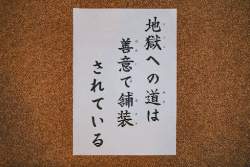 地獄への道は
善意で舗装
されている